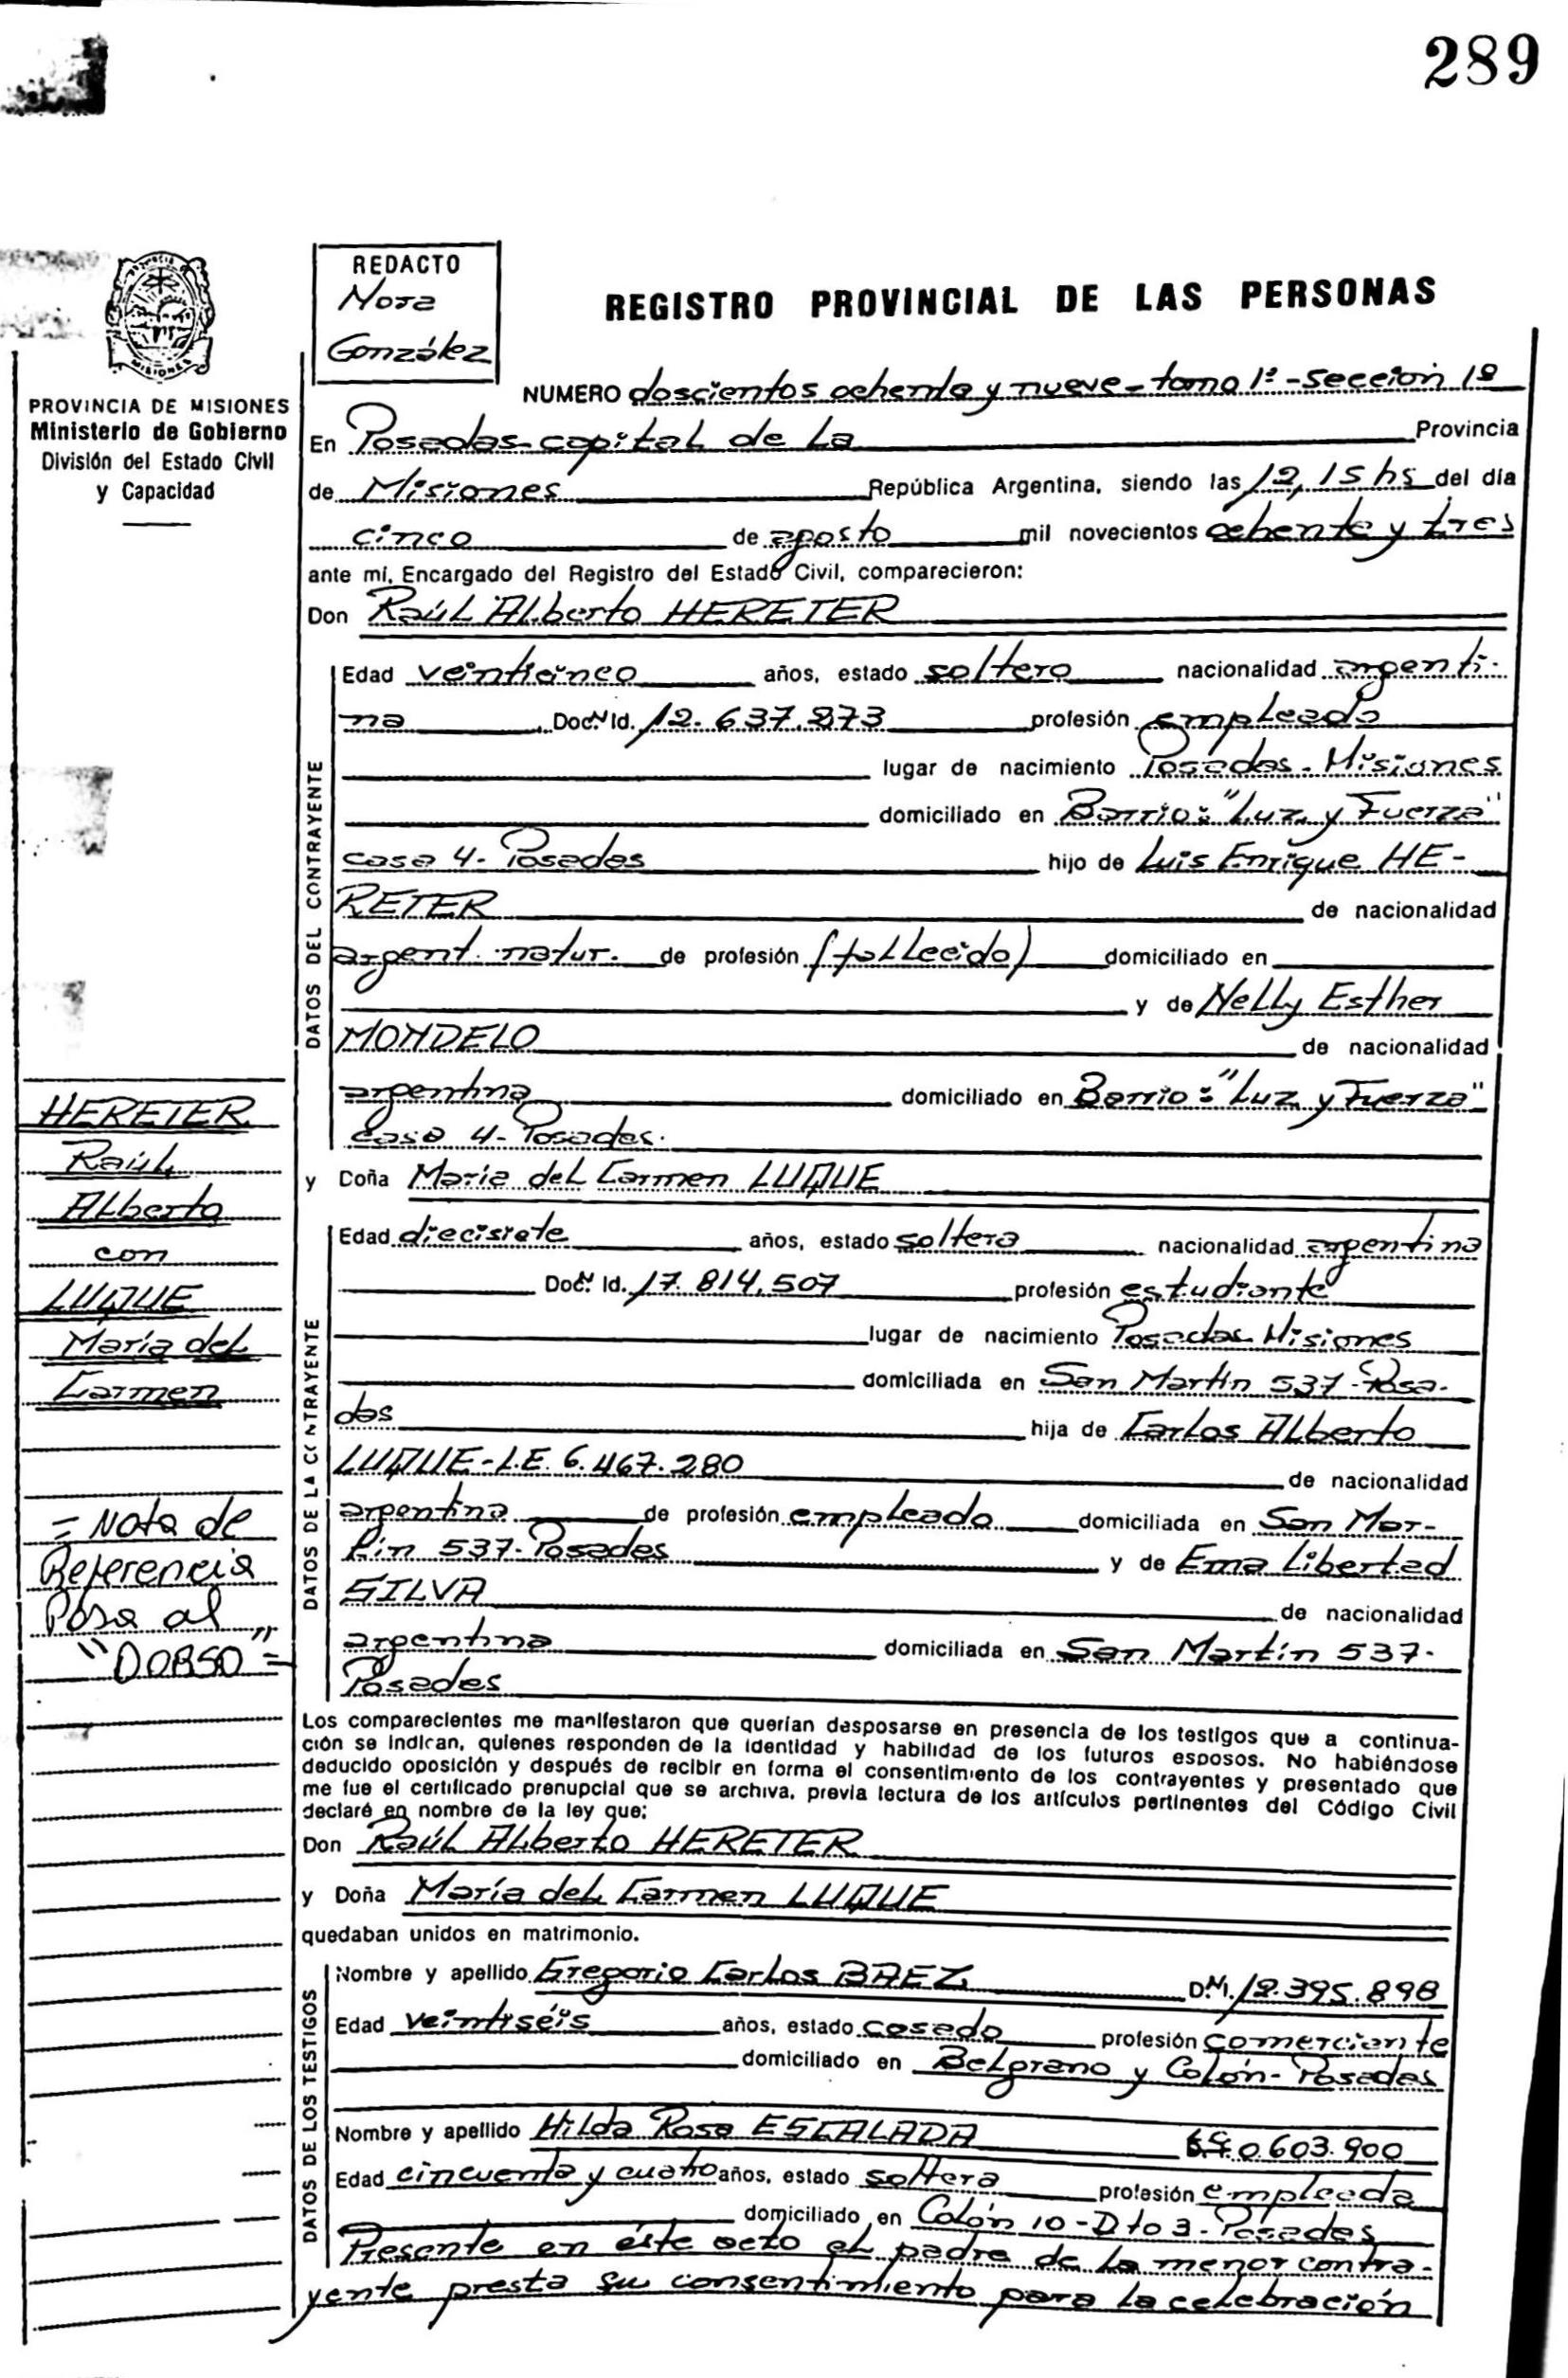 289
REDACTO
Nora
González
REGISTRO PROVINCIAL DE LAS PERSONAS
MISIONES
PROVINCIA DE MISIONES
Ministerio de Gobierno
División del Estado Civil
y Capacidad
NUMERO doscientos ochenta y nueve - tomo 1º - sección 1ª
En Posadas capital de La Provincia
de Misiones República Argentina, siendo las 12,15 hs del día
cinco de agosto mil novecientos ochenta y tres
ante mí, Encargado del Registro del Estado Civil, comparecieron:
Don Raúl Alberto HERETER
DATOS DEL CONTRAYENTE
Edad veinticinco años, estado soltero nacionalidad argenti-
na Doc. N Id. 12.637.873 profesión empleado
lugar de nacimiento Posadas - Misiones
domiciliado en Barrio: "Luz y Fuerza"
casa 4- Posadas hijo de Luis Enrique HE-
RETER de nacionalidad
argent. natur. de profesión (fallecido) domiciliado en
y de Nelly Esther
MONDELO de nacionalidad
argentina domiciliado en Barrio: "Luz y Fuerza"
casa 4- Posadas.
y Doña María del Carmen LUQUE
DATOS DE LA CONTRAYENTE
Edad diecisiete años, estado soltera nacionalidad argentina
Doc. N Id. 17.814.507 profesión estudiante
lugar de nacimiento Posadas Misiones
domiciliada en San Martín 537-Posa-
das hija de Carlos Alberto
LUQUE-L.E. 6.467.280 de nacionalidad
argentina de profesión empleado domiciliada en San Mar-
tín 537- Posadas y de Ema Libertad
SILVA de nacionalidad
argentina domiciliada en San Martín 537-
Posadas
HERETER
Raúl
Alberto
con
LUQUE
María del
Carmen
= Nota de
Referencia
Pasa al
"DORSO" =
Los comparecientes me manifestaron que querían desposarse en presencia de los testigos que a continua-
ción se indican, quienes responden de la identidad y habilidad de los futuros esposos. No habiéndose
deducido oposición y después de recibir en forma el consentimiento de los contrayentes y presentado que
me fue el certificado prenupcial que se archiva, previa lectura de los artículos pertinentes del Código Civil
declaré en nombre de la ley que:
Don Raúl Alberto HERETER
y Doña María del Carmen LUQUE
quedaban unidos en matrimonio.
DATOS DE LOS TESTIGOS
Nombre y apellido Gregorio Carlos BAEZ D.N.I. 12.395.898
Edad veintiséis años, estado casado profesión comerciante
domiciliado en Belgrano y Colón- Posadas
Nombre y apellido Hilda Rosa ESCALADA 0.603.900
Edad cincuenta y cuatro años, estado soltera profesión empleada
domiciliado en Colón 10 - Dto 3 - Posadas
Presente en éste acto el padre de la menor contra-
yente presta su consentimiento para la celebración